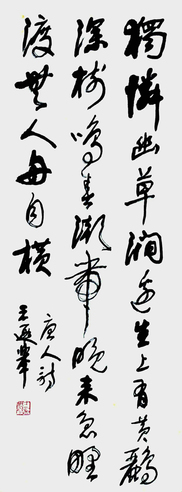 獨憐幽草澗邊生上有黃鸝
深樹鳴春潮帶雨晚来急野
渡無人舟自橫
唐人詩
王遐舉